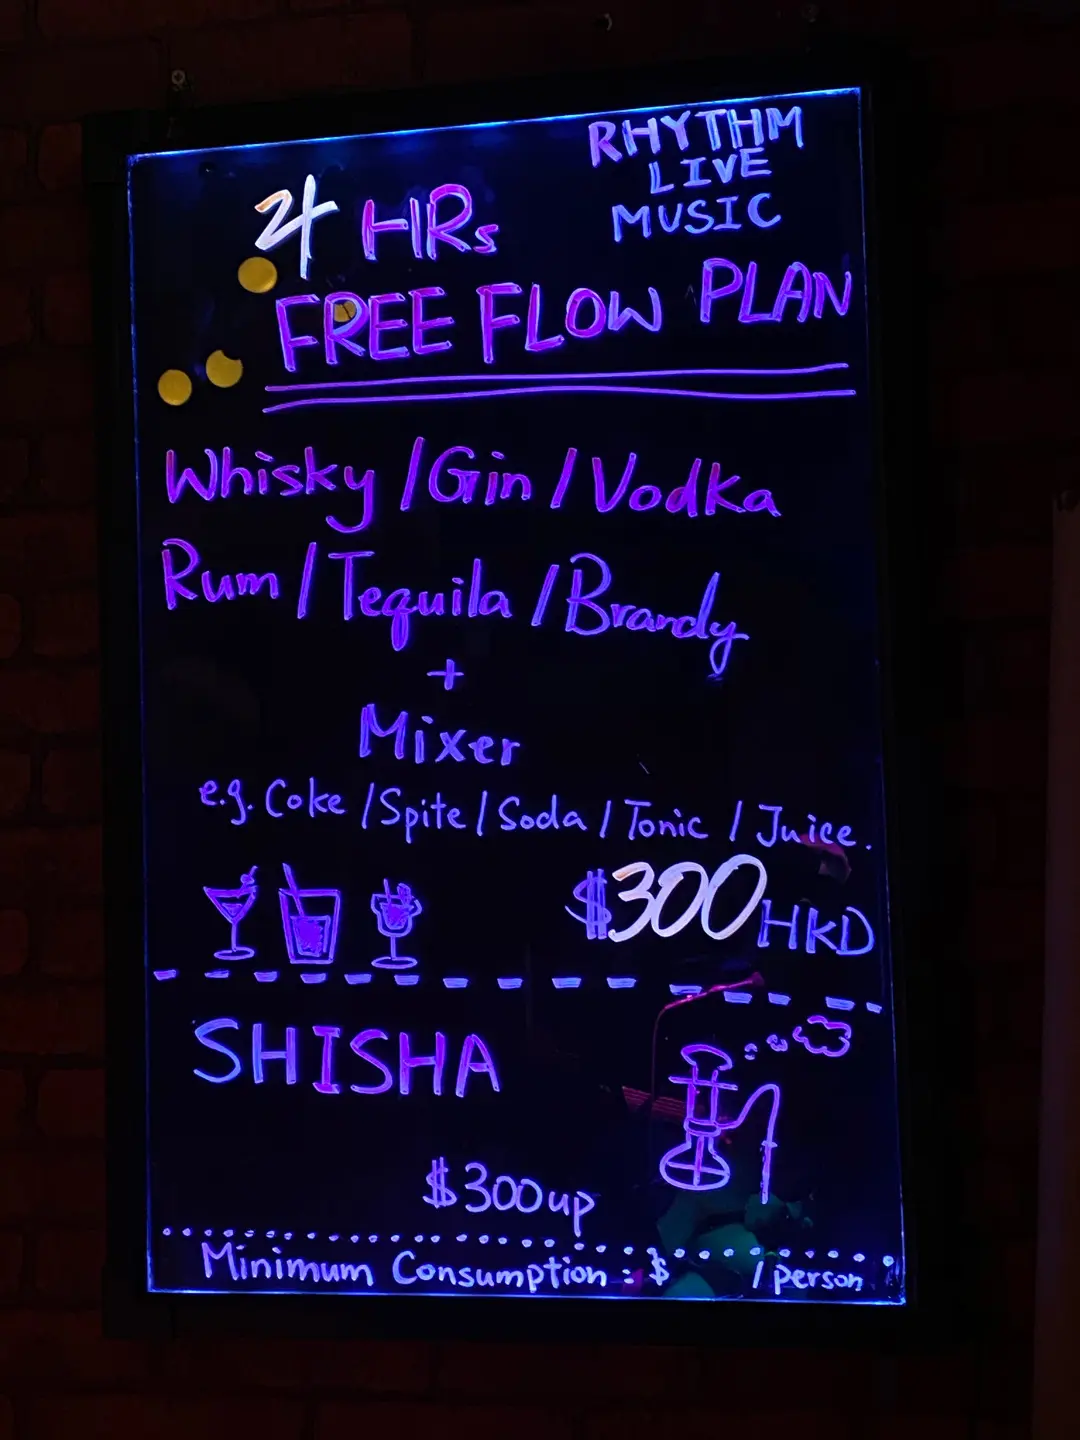 RHYTHM
LIVE
MUSIC
4 HRs
FREE FLOW PLAN
Whisky / Gin / Vodka
Rum / Tequila / Brandy
+
Mixer
e.g. Coke / Spite / Soda / Tonic / Juice.
$300 HKD
SHISHA
$300 up
Minimum Consumption : $ / person